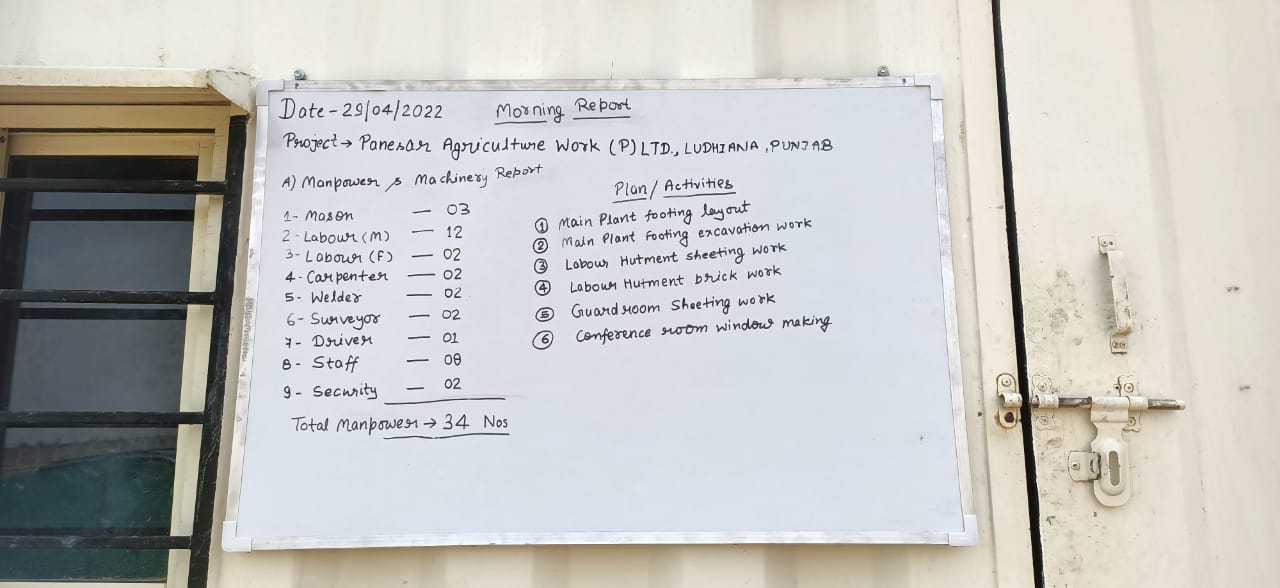 Date - 29/04/2022 Morning Report
Project → Panesar Agriculture Work (P) LTD., LUDHIANA, PUNJAB
A) Manpower & Machinery Report
1- Mason — 03
2- Labour (M) — 12
3- Labour (F) — 02
4- Carpenter — 02
5- Welder — 02
6- Surveyor — 02
7- Driver — 01
8- Staff — 08
9- Security — 02
Total Manpower → 34 Nos
Plan / Activities
① Main Plant footing layout
② Main Plant footing excavation work
③ Labour Hutment sheeting work
④ Labour Hutment brick work
⑤ Guard room Sheeting work
⑥ Conference room window making